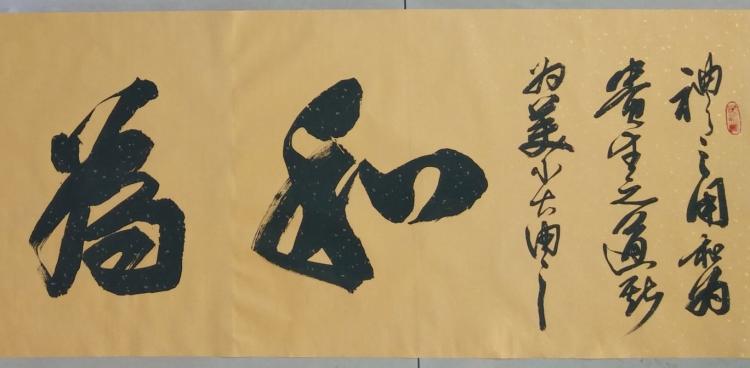 禮之用和为
貴先王之道斯
为美小大由之
和
為